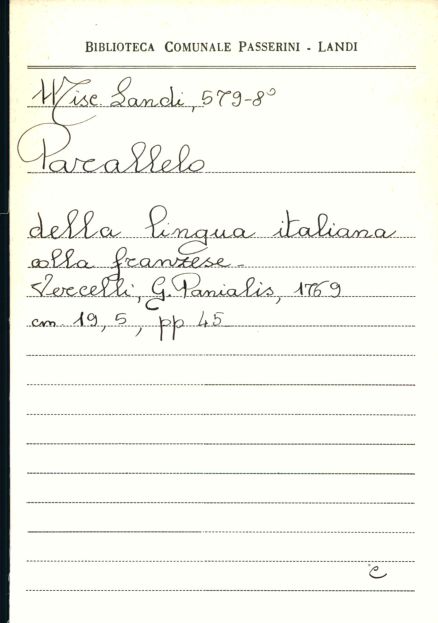 BIBLIOTECA COMUNALE PASSERINI - LANDI
Misc. Landi, 579-8°
Parallelo
della lingua italiana
colla franzese -
Vercelli, G. Panialis, 1769
cm. 19, 5, pp 45
c